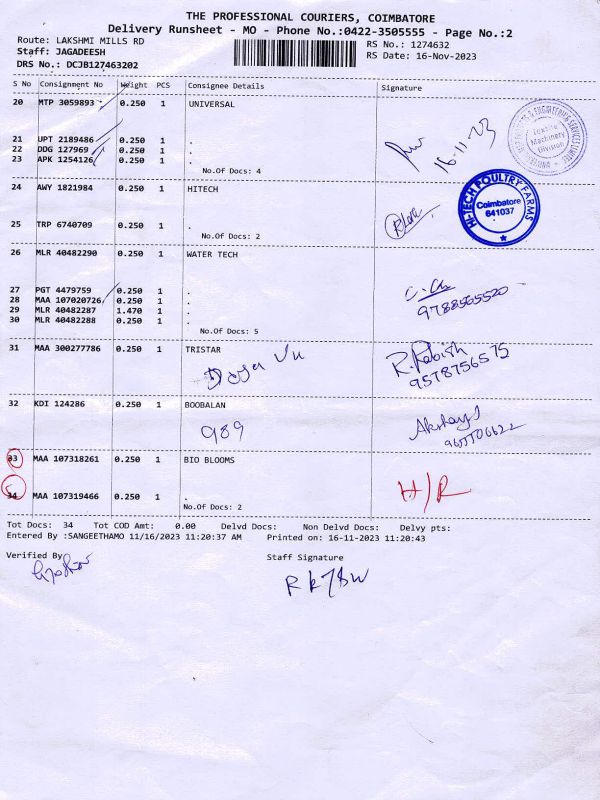 THE PROFESSIONAL COURIERS, COIMBATORE
Delivery Runsheet - MO - Phone No.:0422-3505555 - Page No.:2
Route: LAKSHMI MILLS RD
RS No.: 1274632
Staff: JAGADEESH
RS Date: 16-Nov-2023
DRS No.: DCJB127463202
S No Consignment No Weight PCS Consignee Details Signature
20 MTP 3059893 0.250 1 UNIVERSAL
21 UPT 2189486 0.250 1 .
22 DDG 127969 0.250 1 .
23 APK 1254126 0.250 1 .
No.Of Docs: 4
16-11-23
Textile Machinery Division
24 AWY 1821984 0.250 1 HITECH
25 TRP 6740709 0.250 1 .
No.Of Docs: 2
HI-TECH POULTRY FARMS
Coimbatore
641037
26 MLR 40482290 0.250 1 WATER TECH
27 PGT 4479759 0.250 1 .
28 MAA 107020726 0.250 1 .
29 MLR 40482287 1.470 1 .
30 MLR 40482288 0.250 1 .
No.Of Docs: 5
9788565520
31 MAA 300277786 0.250 1 TRISTAR
R. Rabith
9578756575
32 KDI 124286 0.250 1 BOOBALAN
989
Akshay
33 MAA 107318261 0.250 1 BIO BLOOMS
34 MAA 107319466 0.250 1 .
No.Of Docs: 2
H/R
Tot Docs: 34 Tot COD Amt: 0.00 Delvd Docs: Non Delvd Docs: Delvy pts:
Entered By :SANGEETHAMO 11/16/2023 11:20:37 AM Printed on: 16-11-2023 11:20:43
Verified By
Staff Signature